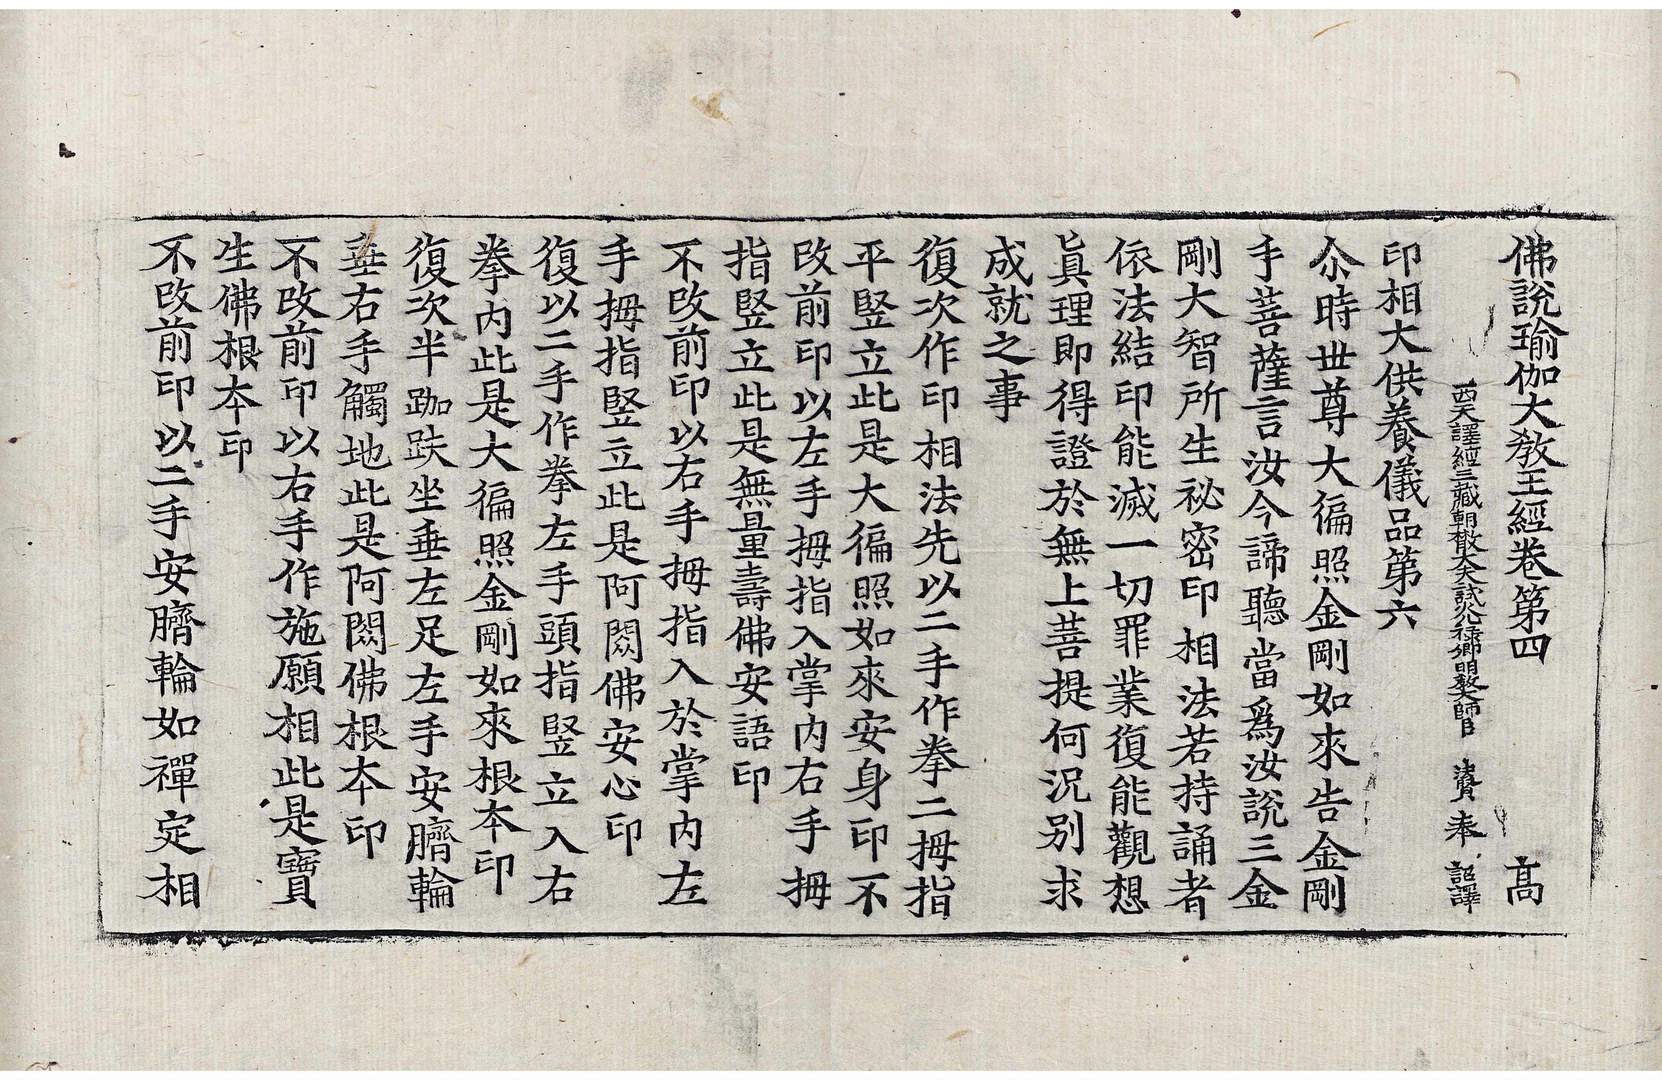 佛說瑜伽大教王經卷第四 高
西天譯經三藏朝散大夫試光祿卿明教大師臣 法賢奉 詔譯
印相大供養儀品第六
尒時世尊大徧照金剛如來告金剛
手菩薩言汝今諦聽當爲汝說三金
剛大智所生祕密印相法若持誦者
依法結印能滅一切罪業復能觀想
眞理即得證於無上菩提何況別求
成就之事
復次作印相法先以二手作拳二拇指
平豎立此是大徧照如來安身印不
改前印以左手拇指入掌内右手拇
指豎立此是無量壽佛安語印
不改前印以右手拇指入於掌内左
手拇指竪立此是阿閦佛安心印
復以二手作拳左手頭指竪立入右
拳内此是大徧照金剛如來根本印
復次半跏趺坐垂左足左手安臍輪
垂右手觸地此是阿閦佛根本印
不改前印以右手作施願相此是寶
生佛根本印
不改前印以二手安臍輪如禪定相